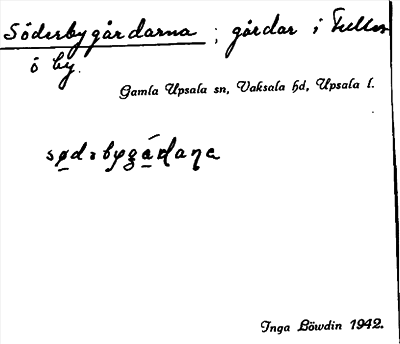 Söderbygårdarna ; gårdar i Fullerö by.
Gamla Upsala sn, Vaksala hd, Upsala l.
Inga Löwdin 1942.